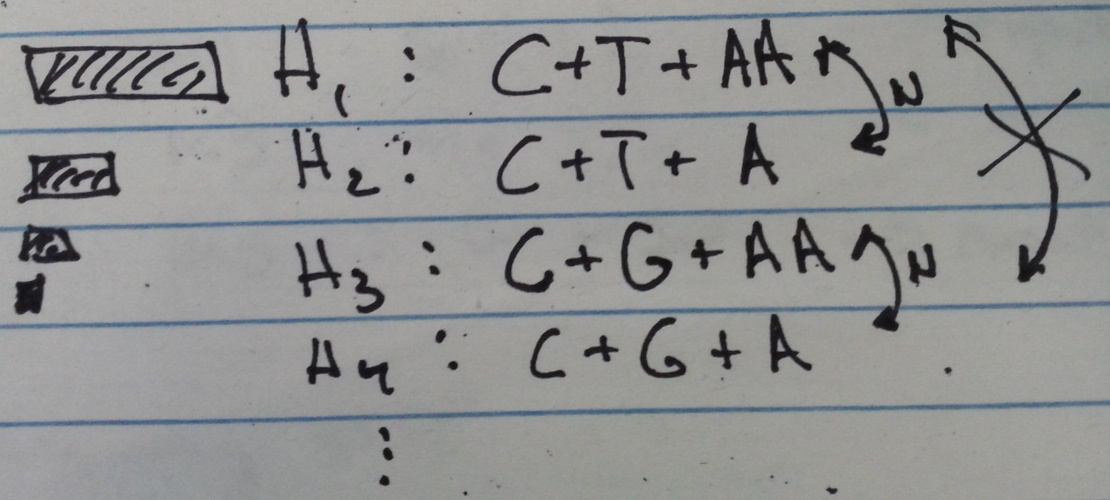 H₁ : C+T+AA N
H₂ : C+T+A
H₃ : C+G+AA N
H₄ : C+G+A
⋮